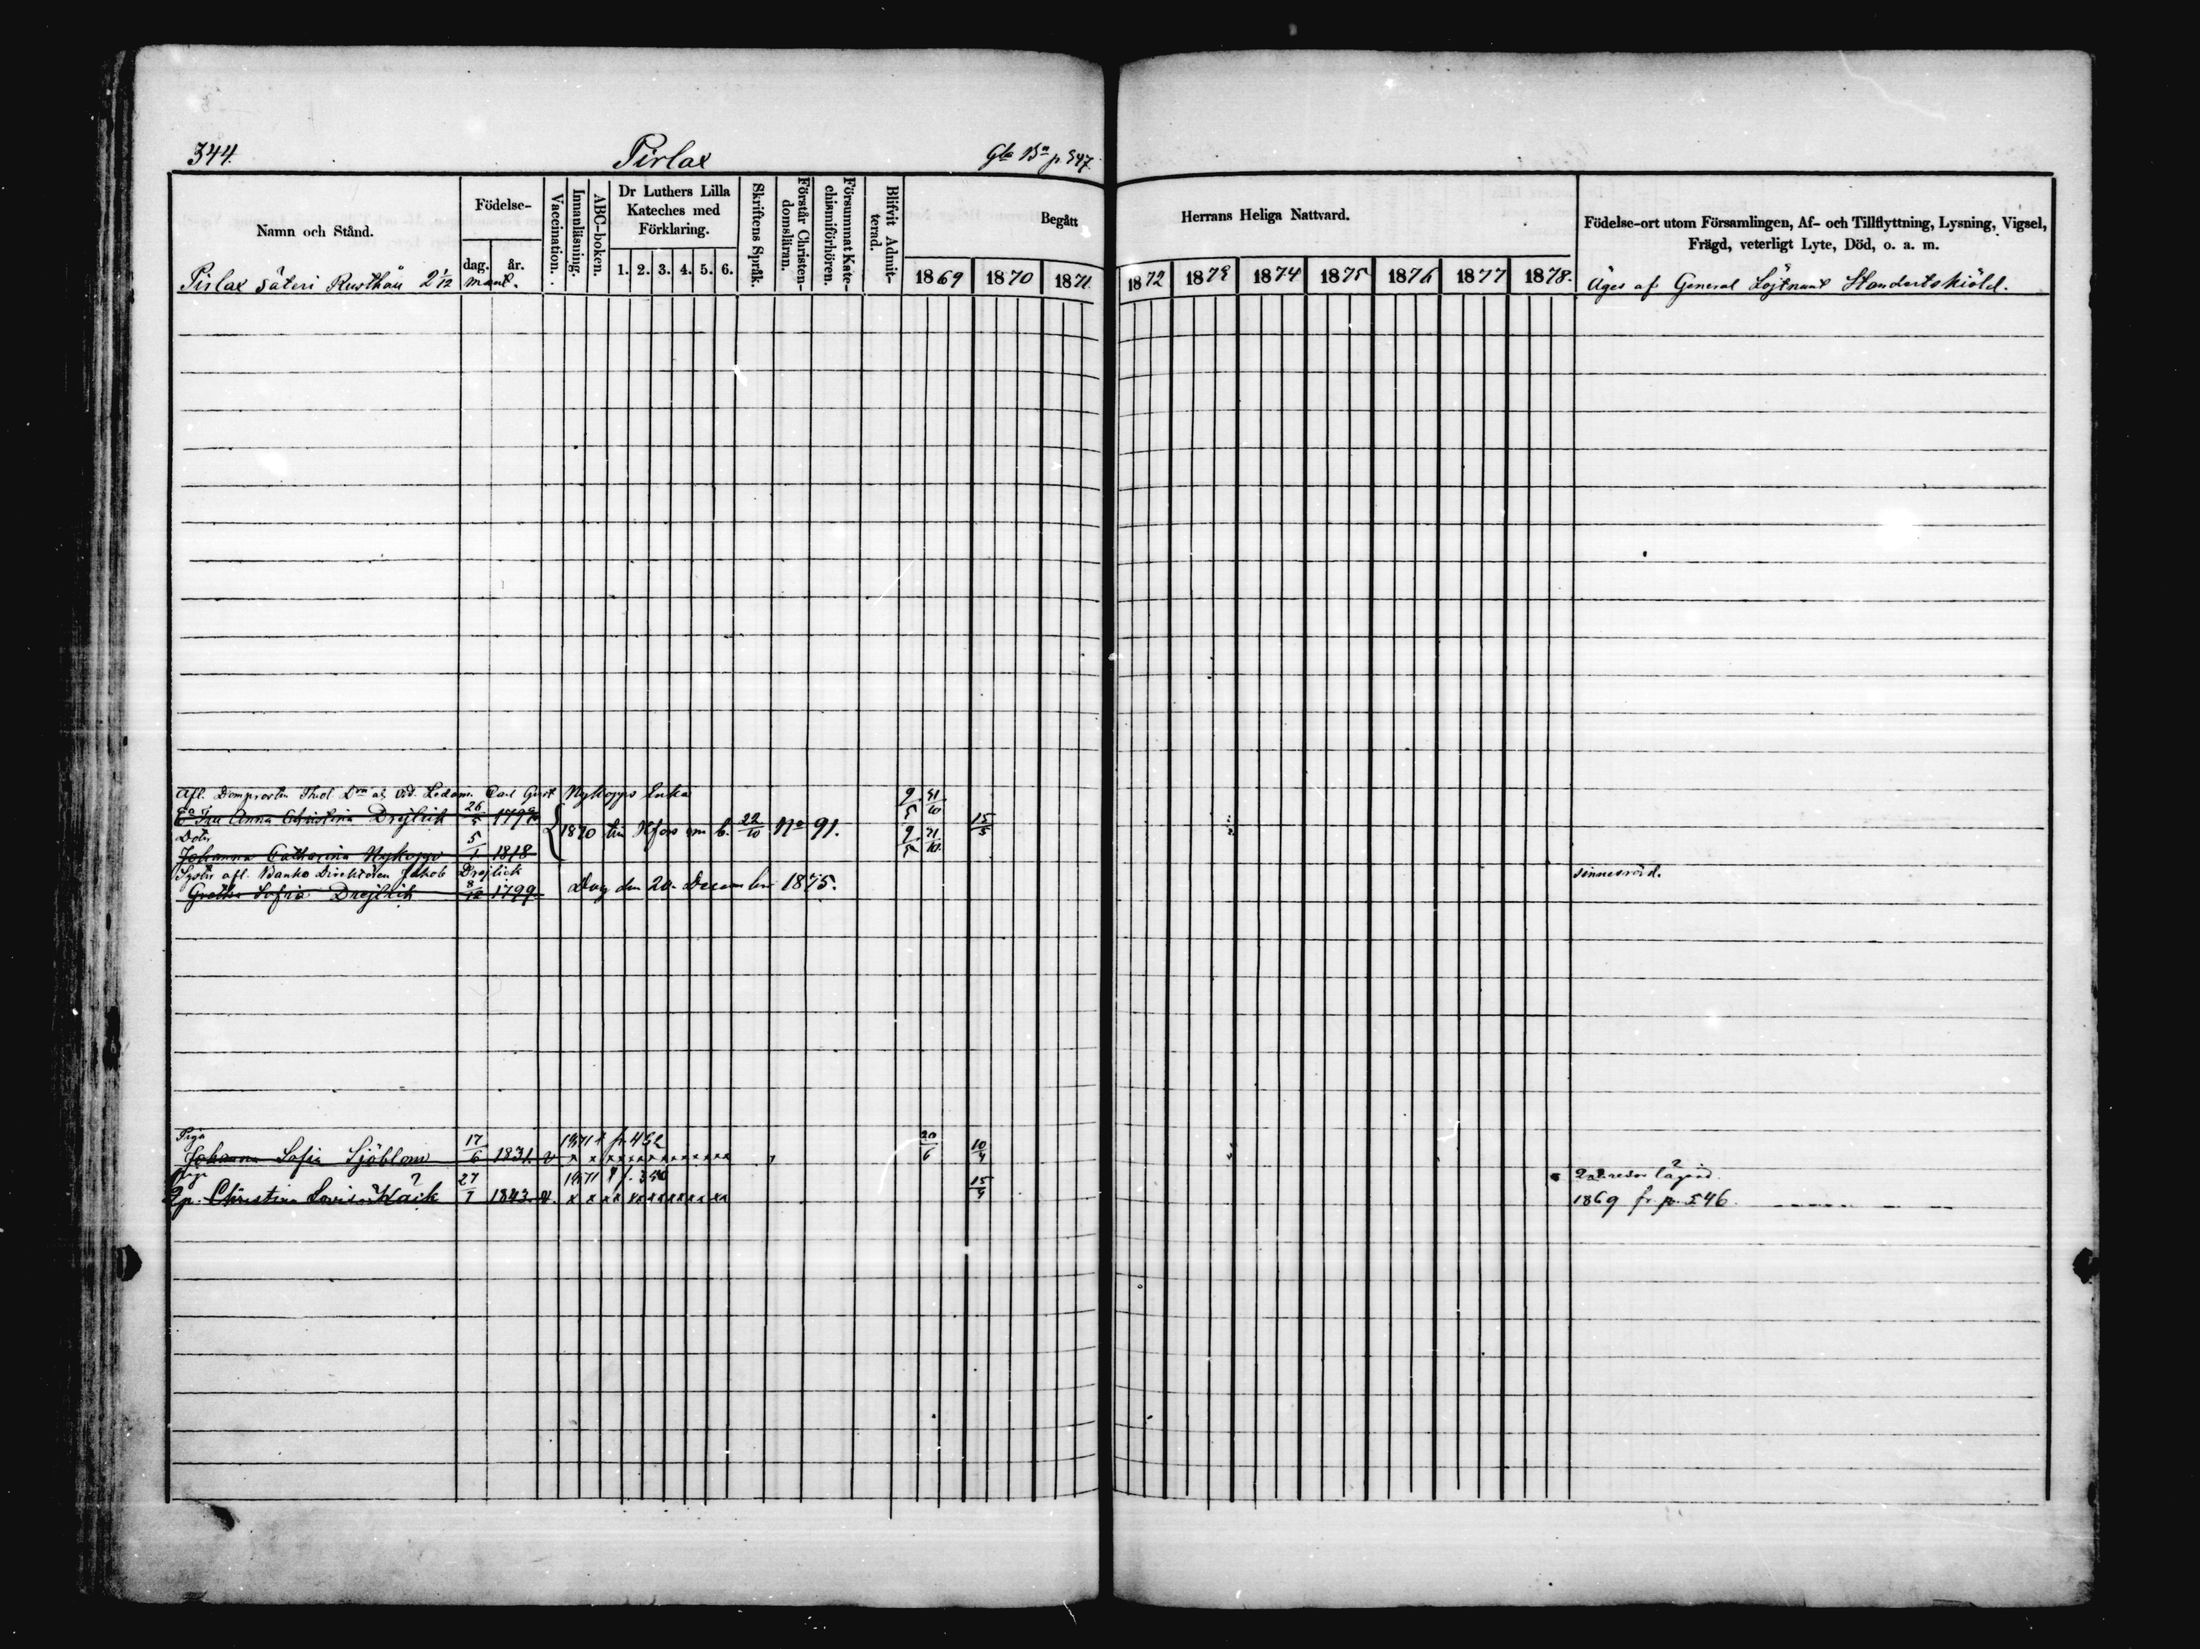 344.
Pirlax
Gla Bn p 347.
Namn och Stånd.
Födelse-
dag.
år.
Vaccination.
Innanläsning.
ABC-boken.
Dr Luthers Lilla Kateches med Förklaring.
1. 2. 3. 4. 5. 6.
Skriftens Språk.
Förstår Christendomsläran.
Försummat Katechismiförhören.
Blifvit Admitterad.
Begått
Herrans Heliga Nattvard.
1869 1870 1871 1872 1873 1874 1875 1876 1877 1878.
Födelse-ort utom Församlingen, Af- och Tillflyttning, Lysning, Vigsel,
Frägd, veterligt Lyte, Död, o. a. m.
Pirlax säteri Rusthåll 2 1/12 mant.
Äges af General Löjtnant
Afl. Domprosten Theol. Carl Gust Nykopps Enka 9/5 31/10
Fru Anna Christina Drejlick 26/5 179
1870 till Hfors om b. 22/10 No 91. 15/5
Dotr 5/1 9/5 31/10
Johanna Catharina Nykopp 1818
Syster afl. Banko Direktören Jakob Drejlick
sinnesrörd.
Sofia Drejlick 1799. Dog den 20 December 1875.
Piga 17/6 1871 p. 452 20/6 10/4
Johanna Sofia Sjöblom 1831. v x x x x x x x x x x
Piga 27/1 1871 15/4
Christina Lovisa 1843. v. x x x x x x x x x x
1869 fr. p. 546.